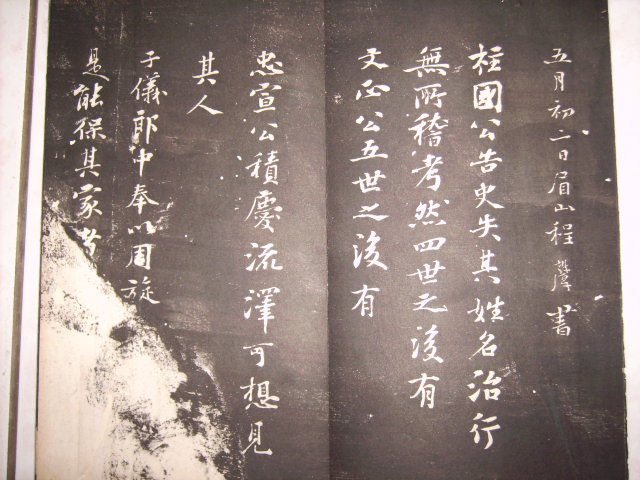 五月初二日眉山程㷸書
柱國公告史失其姓名治行
無所稽考然四世之後有
文正公五世之後有
忠宣公積慶流澤可想見
其人
子儀郎中奉以周旋
是能保其家者